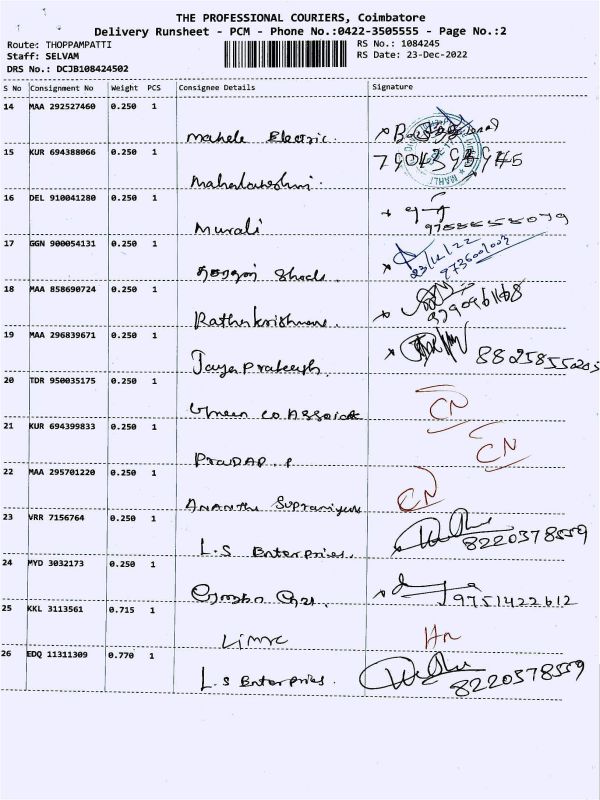 THE PROFESSIONAL COURIERS, Coimbatore
Delivery Runsheet - PCM - Phone No.:0422-3505555 - Page No.:2
Route: THOPPAMPATTI
RS No.: 1084245
Staff: SELVAM
RS Date: 23-Dec-2022
DRS No.: DCJB108424502
S No Consignment No Weight PCS Consignee Details Signature
14 MAA 292527460 0.250 1
Mahele Electric.
15 KUR 694388066 0.250 1
Mahalakshmi.
16 DEL 910041280 0.250 1
Murali
17 GGN 900054131 0.250 1
23/12/22
18 MAA 858690724 0.250 1
Rathakrishnan.
19 MAA 296839671 0.250 1
Jaya Prakash.
20 TDR 950035175 0.250 1
CN
21 KUR 694399833 0.250 1
CN
PraDAP. P
22 MAA 295701220 0.250 1
CN
23 VRR 7156764 0.250 1
L.S Enterpries. 8220378559
24 MYD 3032173 0.250 1
9751422612
25 KKL 3113561 0.715 1
26 EDQ 11311309 0.770 1
L.S Enterpries. 8220378559